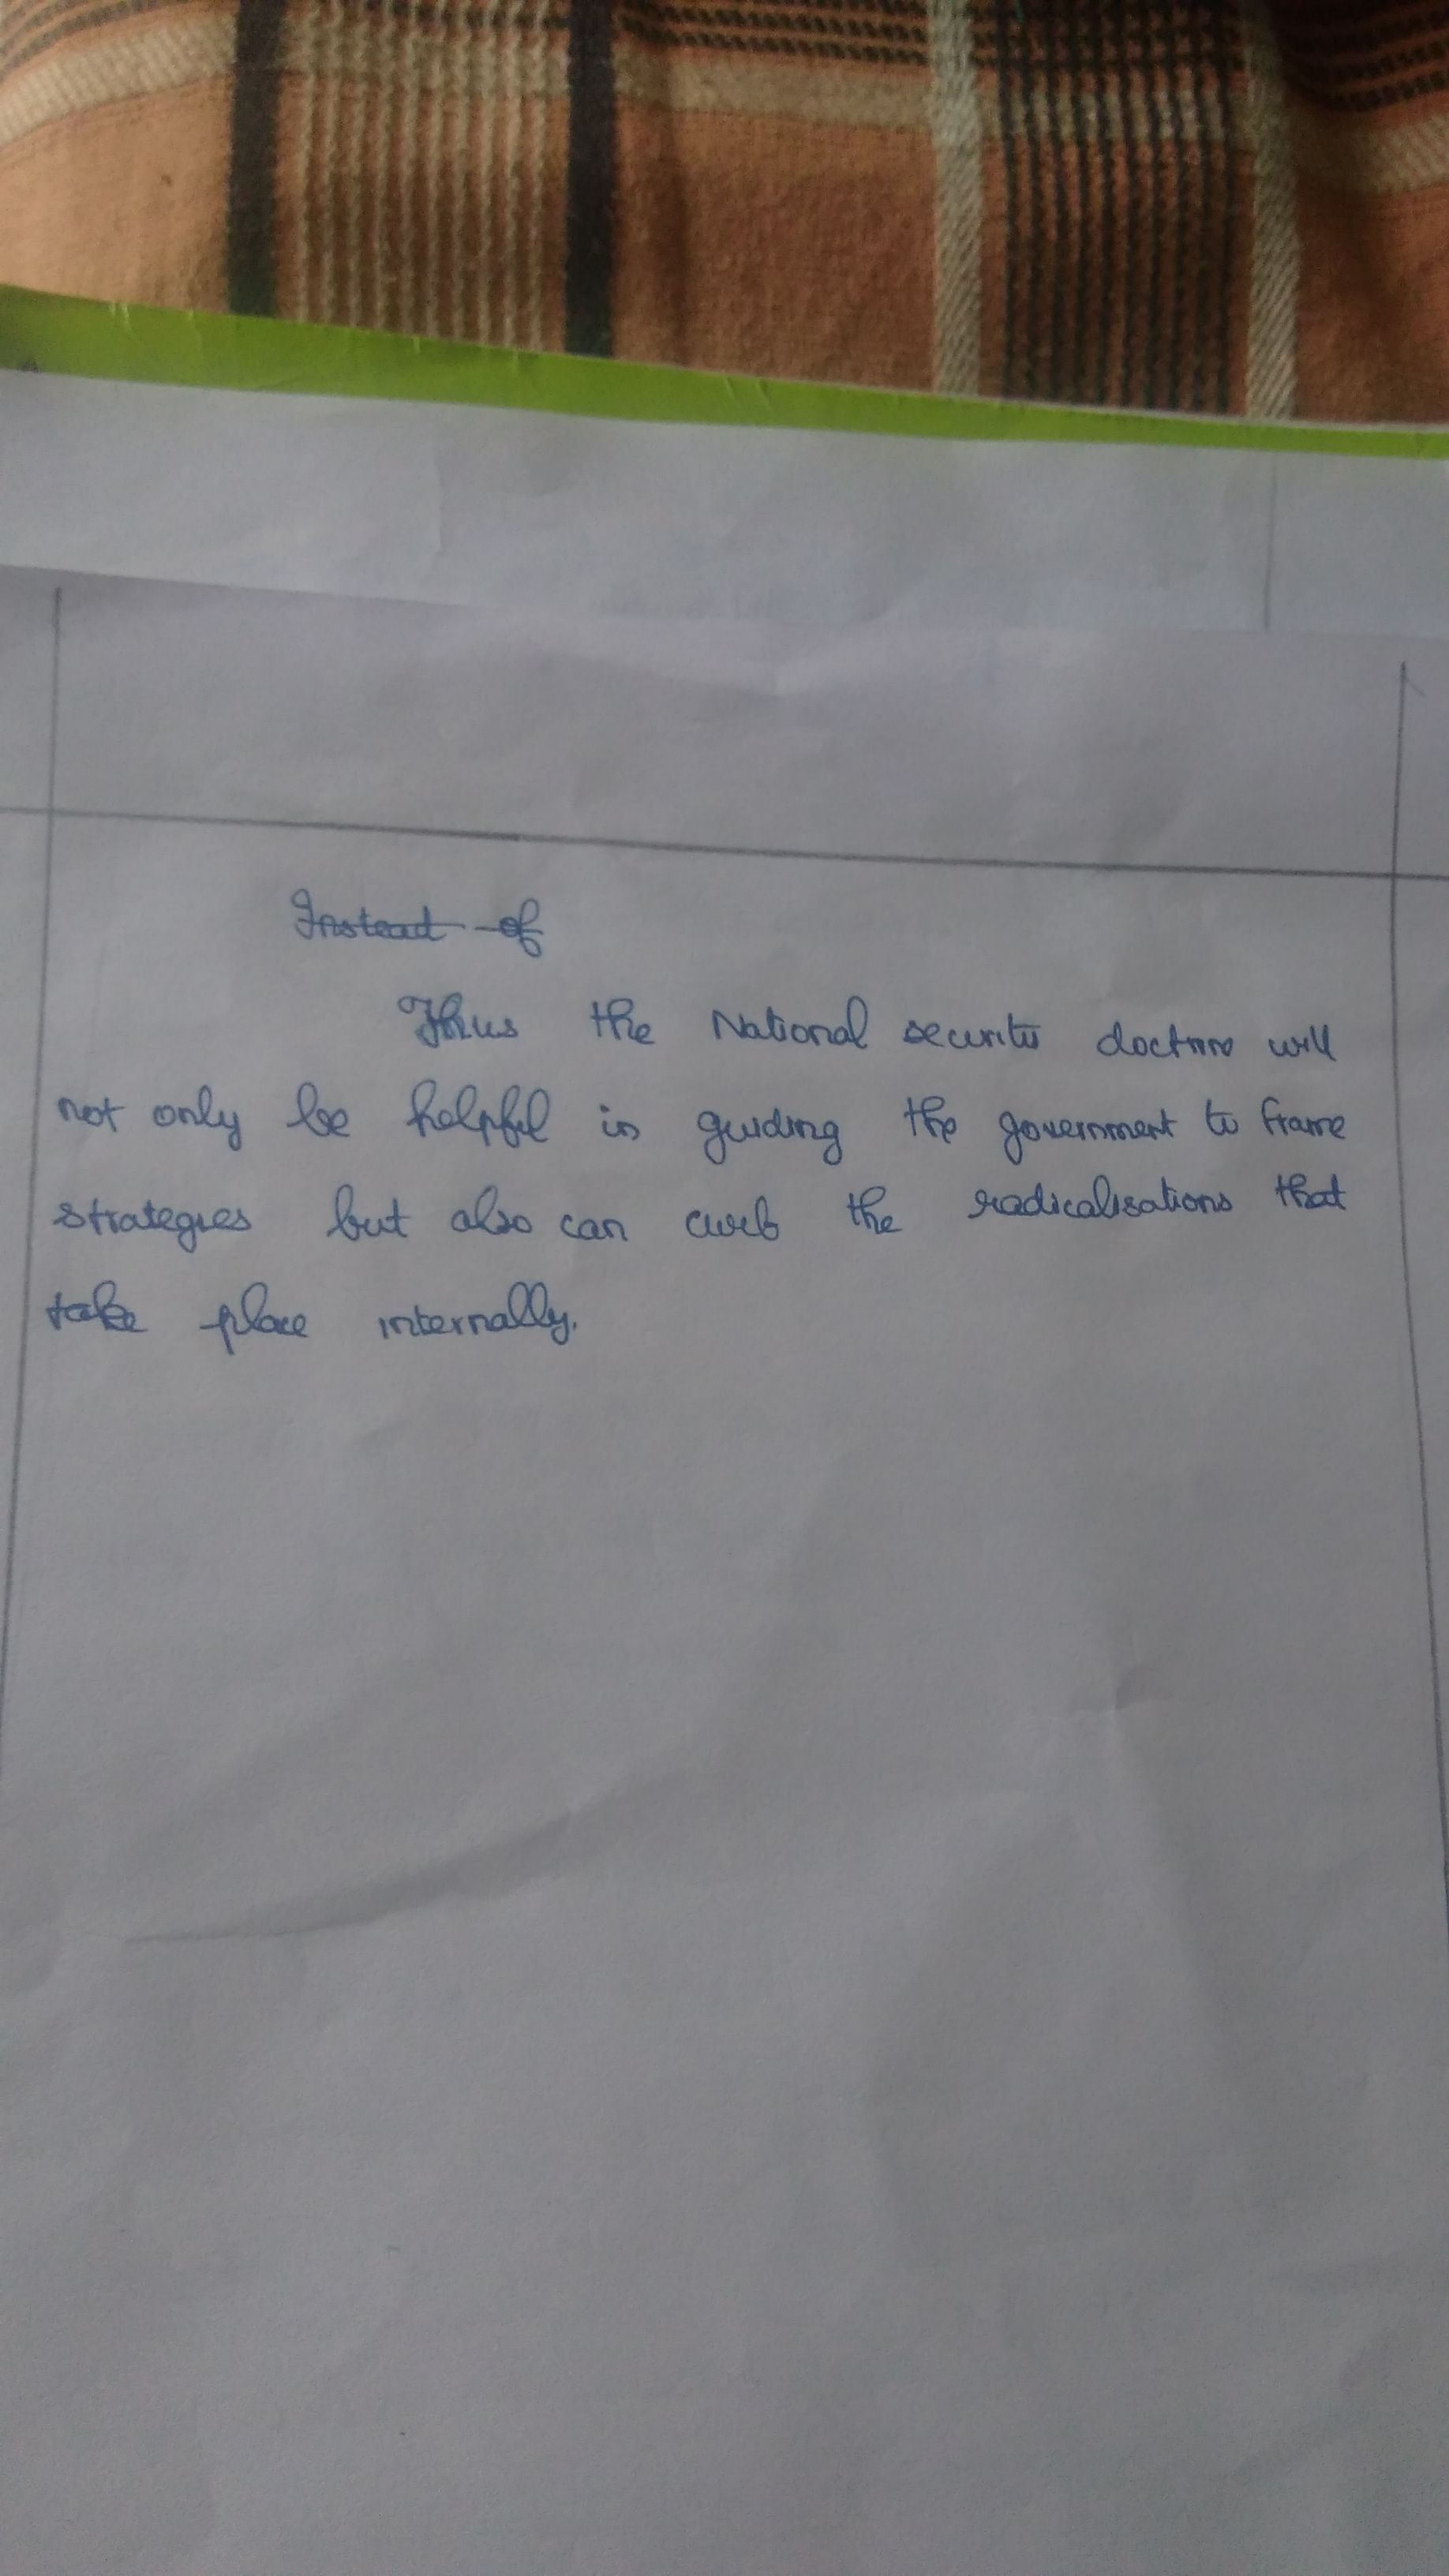 Instead of
Thus the National security doctrine will
not only be helpful in guiding the government to frame
strategies but also can curb the radicalisations that
take place internally.